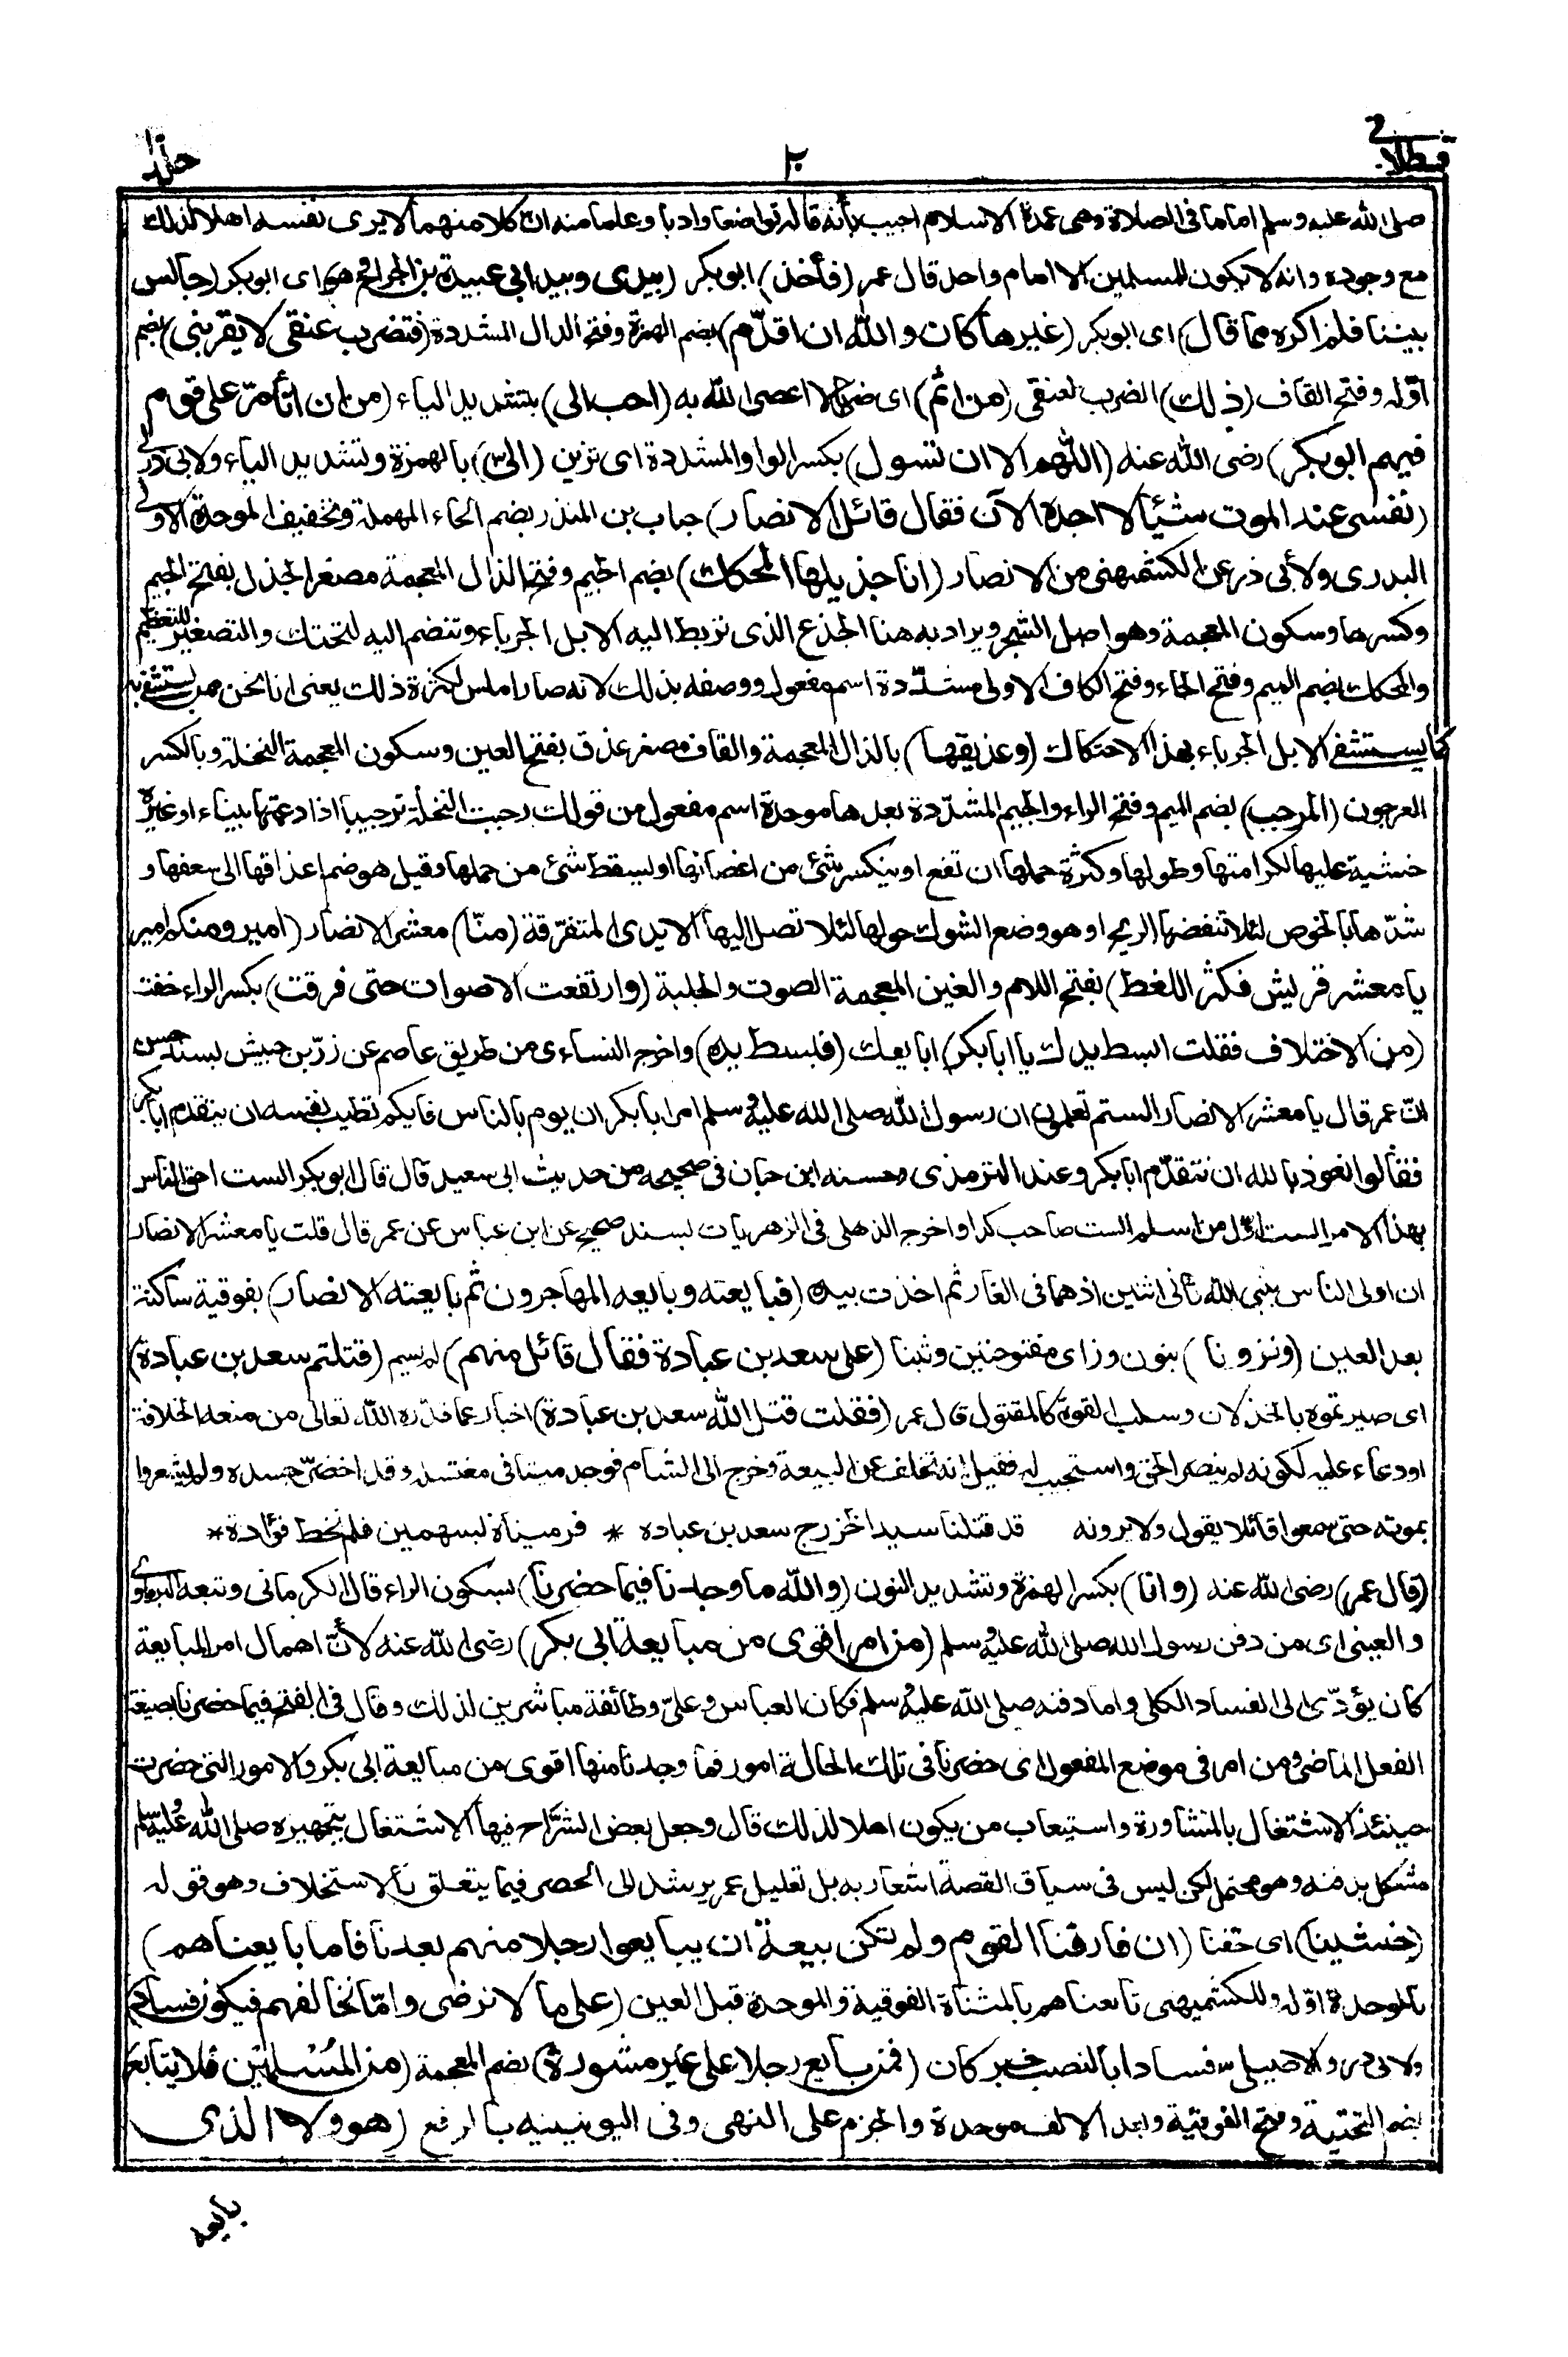 قسطلانى ٢٠ جلد١٠
صلى الله عليه وسلم اماما فى الصلاة وهى عمدة الاسلام اجيب بأنه قاله تواضعا وادبا وعلما منه ان كلا منهما لا يرى نفسه اهلا لذلك
مع وجوده وانه لا يكون للمسلمين الا امام واحد قال عمر (فأخذ) ابو بكر (بيدى وبيد ابى عبيدة بن الجراح وهو) اى ابو بكر (جالس
بيننا فلم اكره مما قال) اى ابو بكر (غيرها كان والله ان اقدّم) بضم الهمزة وفتح الدال المشددة (فتضرب عنقى لا يقربنى) بضم
اوّله وفتح القاف (ذلك) الضرب لعنقى (من اثم) اى ضربا لا اعصى الله به (احب الى) بتشديد الياء (من ان اتأمرّ على قوم
فيهم ابو بكر) رضى الله عنه (اللهم الا ان تسول) بكسر الواو المشددة اى تزين (الىّ) بالهمزة وتشديد الياء ولابى ذر لى
(نفسى عند الموت شيأ لا اجده الآن فقال قائل الانصار) حباب بن المنذر بضم الحاء المهملة وتخفيف الموحدة الاولى
البدرى ولأبى ذر عن الكشميهنى من الانصار (انا جذيلها المحكك) بضم الجيم وفتح الذال المعجمة مصغر الجذل بفتح الجيم
وكسرها وسكون المعجمة وهو اصل الشجر ويراد به هنا الجذع الذى تربط اليه الابل الجرباء وتنضم اليه لتحتك والتصغير للتعظيم
والمحكك بضم الميم وفتح الحاء وفتح الكاف الاولى مشدّدة اسم مفعول ووصفه بذلك لانه صار املس لكثرة ذلك يعنى انا نحن ممن يستشفى به
كما يستشفى الابل الجرباء بهذا الاحتكاك (وعذيقها) بالذال المعجمة والقاف مصغر عذق بفتح العين وسكون المعجمة النخلة وبالكسر
العرجون (المرجب) بضم الميم وفتح الراء والجيم المشدّدة بعدها موحدة اسم مفعول من قولك رجبت النخلة ترجيبا اذا دعمتها ببناء او غيره
خشية عليها لكرامتها وطولها وكثرة حملها ان تقع او ينكسر شئ من اغصانها او يسقط شئ من حملها وقيل هو ضم اعذاقها الى سعفها و
شدّها بالخوص لئلا تنفضها الريح او هو وضع الشوك حولها لئلا تصل اليها الايدى المتفرّقة (منّا) معشر الانصار (امير ومنكم امير
يا معشر قريش فكثر اللغط) بفتح اللام والغين المعجمة الصوت والجلبة (وارتفعت الاصوات حتى فرقت) بكسر الراء خفت
(من الاختلاف فقلت ابسط يدك يا ابا بكر) ابايعك (فبسط يده) واخرج النساءى من طريق عاصم عن زرّ بن حبيش بسند حسن
انّ عمر قال يا معشر الانصار الستم تعلمون ان رسول الله صلى الله عليه وسلم امر ابا بكر ان يوم بالناس فايكم تطيب نفسه ان يتقدم ابا بكر
فقالوا نعوذ بالله ان نتقدّم ابا بكر وعند الترمذى وحسنه ابن حبان فى صحيحه من حديث ابى سعيد قال قال ابو بكر الست احق الناس
بهذا الامر الست اوّل من اسلم الست صاحب كذا واخرج الذهلى فى الزهريات بسند صحيح عن ابن عباس عن عمر قال قلت يا معشر الانصار
ان اولى الناس بنبى الله ثانى اثنين اذ هما فى الغار ثم اخذت بيده (فبايعته وبايعه المهاجرون ثم بايعته الانصار) بفوقية ساكنة
بعد العين (ونزونا) بنون وزاى مفتوحتين وثبنا (على سعد بن عبادة فقال قائل منهم) لم يسم (قتلتم سعد بن عبادة)
اى صيرتموه بالخذلان وسلب القوة كالمقتول قال عمر (فقلت قتل الله سعد بن عبادة) اخبار عما قدّره الله تعالى من منعه الخلافة
او دعاء عليه لكونه لم ينصر الحق واستجيب له فقيل انه تخلف عن البيعة وخرج الى الشام فوجد ميتا فى مغتسله وقد اخضرّ جسده ولم يشعروا
بموته حتى سمعوا قائلا يقول ولا يرونه قد قتلنا سيد الخزرج سعد بن عباده * فرميناه بسهمين فلم نخط فؤاده *
(قال عمر) رضى الله عنه (وانا) بكسر الهمزة وتشديد النون (والله ما وجدنا فيما حضرنا) بسكون الراء قال الكرمانى وتبعه البرماوى
والعينى اى من دفن رسول الله صلى الله عليه وسلم (من امر اقوى من مبايعة ابى بكر) رضى الله عنه لأنّ اهمال امر المبايعة
كان يؤدّى الى الفساد الكلى واما دفنه صلى الله عليه وسلم فكان العباس وعلىّ وطائفة مباشرين لذلك وقال فى الفتح فيما حضرنا بصيغة
الفعل الماضى ومن امر فى موضع المفعول اى حضرنا فى تلك الحالة امور فما وجدنا منها اقوى من مبايعة ابى بكر والامور التى حضرت
حينئذ الاشتغال بالمشاورة واستيعاب من يكون اهلا لذلك قال وجعل بعض الشرّاح فيها الاشتغال بتجهيزه صلى الله عليه وسلم
مشكل بدفنه وهو محتمل لكن ليس فى سياق القصة اشعار به بل تعليل عمر يرشد الى الحصر فيما يتعلق بالاستخلاف وهو قوله
(خشينا) اى خفنا (ان فارقنا القوم ولم تكن بيعة ان يبايعوا رجلا منهم بعدنا فاما بايعناهم)
بالموحدة اوّله وللكشميهنى تابعناهم بالمثناة الفوقية والموحدة قبل العين (على ما لا نرضى وامّا نخالفهم فيكون فساد)
ولابى ذر والاصيلى فسادا بالنصب خبر كان (فمن بايع رجلا على غير مشورة) بضم المعجمة (من المسلمين فلا يتابع
بضم التحتية وفتح الفوقية وبعد الالف موحدة والجزم على النهى وفى اليونينيه بالرفع (هو ولا الذى
بايعه